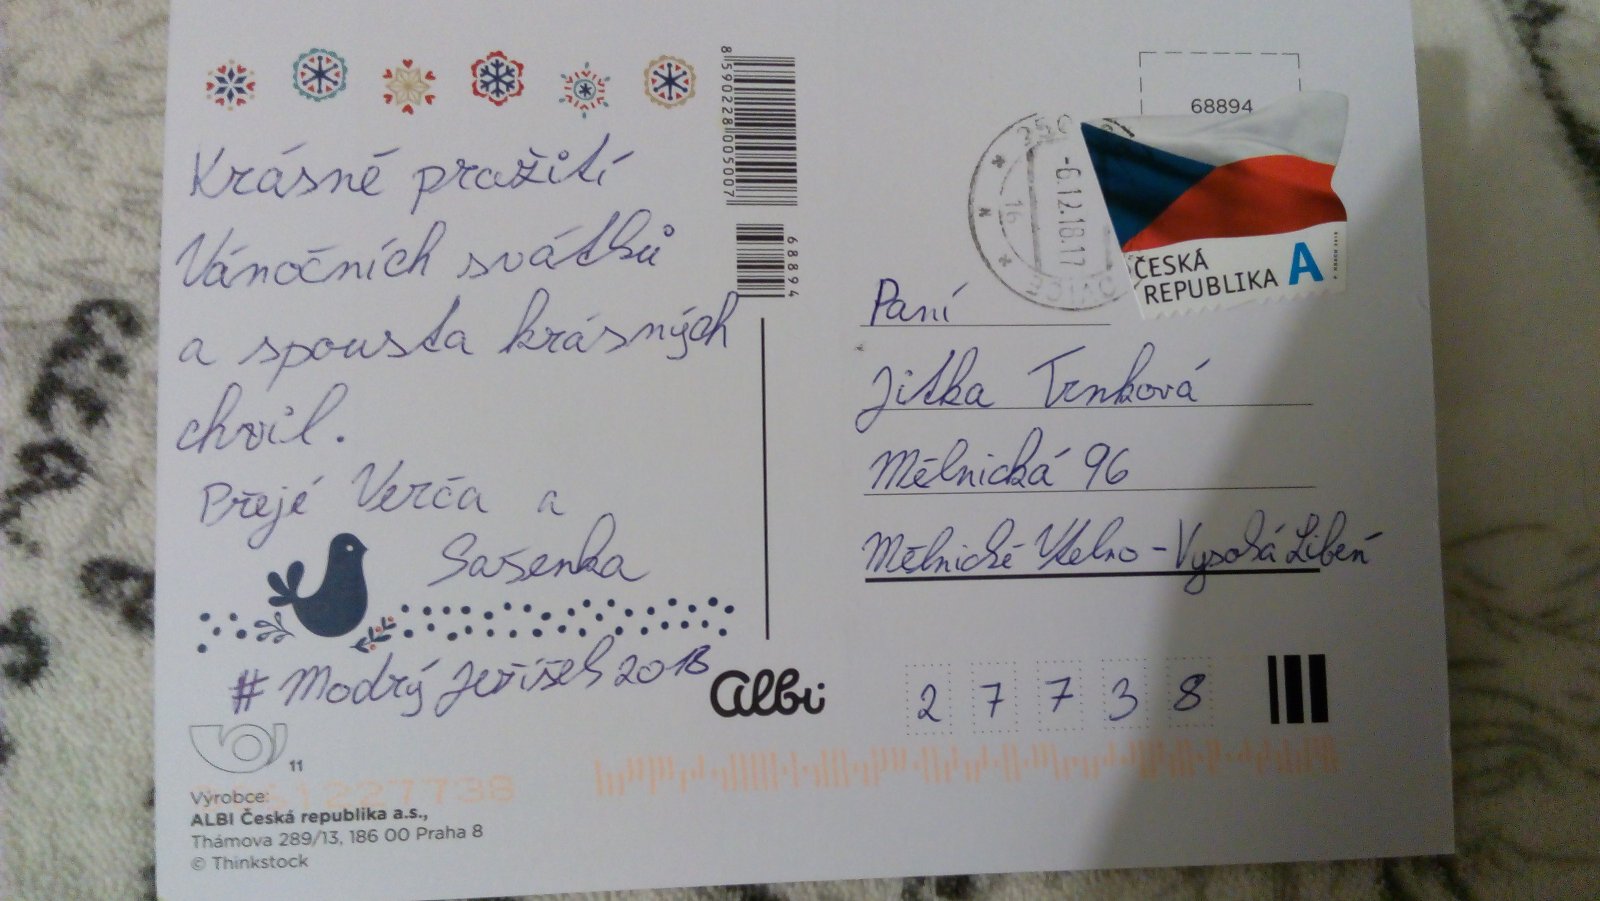 8590228005007
68894
Krásné pražití
Vánočních svátků
a spousta krásných
chvil.
Přejé Verča a
Sašenka
# Modrý Jeřišek 2018
11
Výrobce:
ALBI Česká republika a.s.,
Thámova 289/13, 186 00 Praha 8
© Thinkstock
albi
68894
-6.12.18.17
16
ČESKÁ
REPUBLIKA A
Paní
Jitka Trnková
Mělnická 96
Mělnické Vtelno - Vysoká Libeň
27738